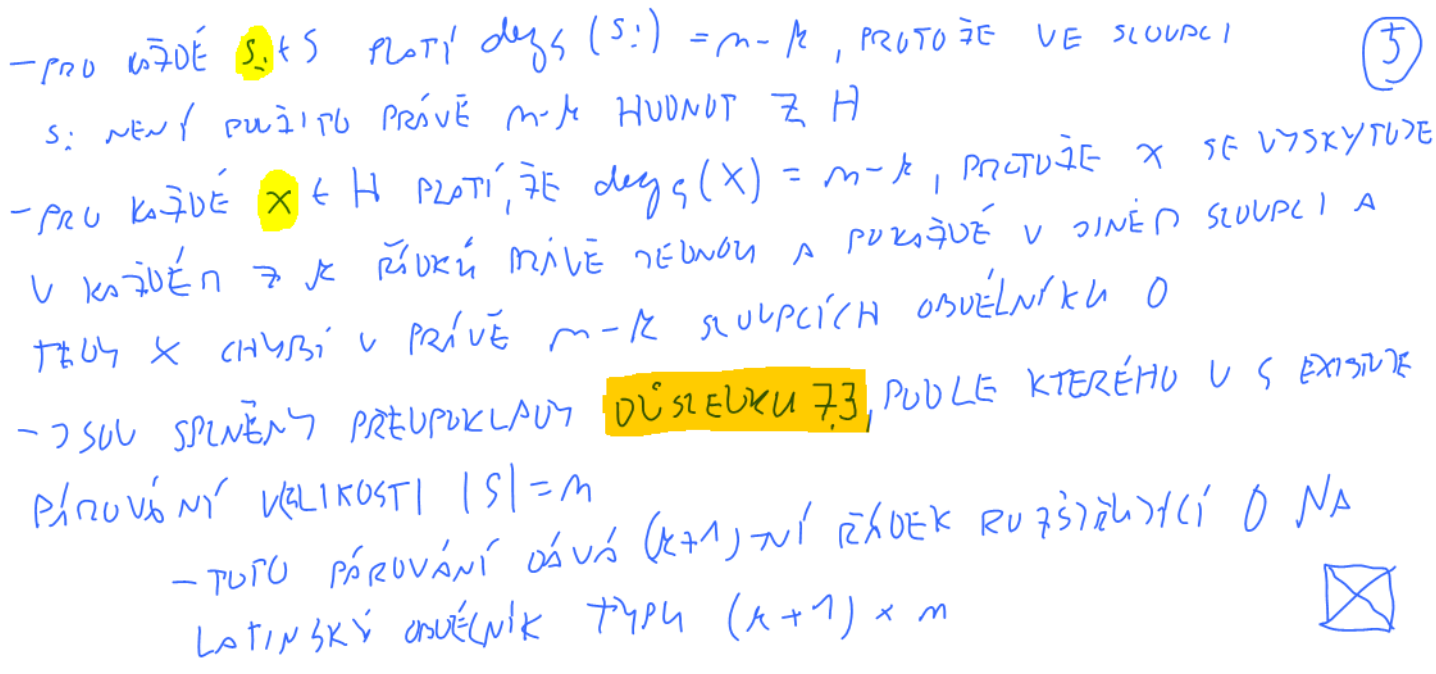 - PRO KAŽDÉ s_i ∈ S PLATÍ deg_G (s_i) = n-k, PROTOŽE VE SLOUPCI
5
s_i NENÍ POUŽITO PRÁVĚ n-k HODNOT Z H
- PRO KAŽDÉ x ∈ H PLATÍ, ŽE deg_G (x) = n-k, PROTOŽE x SE VYSKYTUJE
V KAŽDÉM Z k ŘÁDKŮ PRÁVĚ JEDNOU A POKAŽDÉ V JINÉM SLOUPCI A
TEDY x CHYBÍ V PRÁVĚ n-k SLOUPCÍCH OBDÉLNÍKU O
- JSOU SPLNĚNY PŘEDPOKLADY DŮSLEDKU 7.3, PODLE KTERÉHO V G EXISTUJE
PÁROVÁNÍ VELIKOSTI |S| = n
- TOTO PÁROVÁNÍ DÁVÁ (k+1)-NÍ ŘÁDEK ROZŠIŘUJÍCÍ O NA
LATINSKÝ OBDÉLNÍK TYPU (k+1) × n